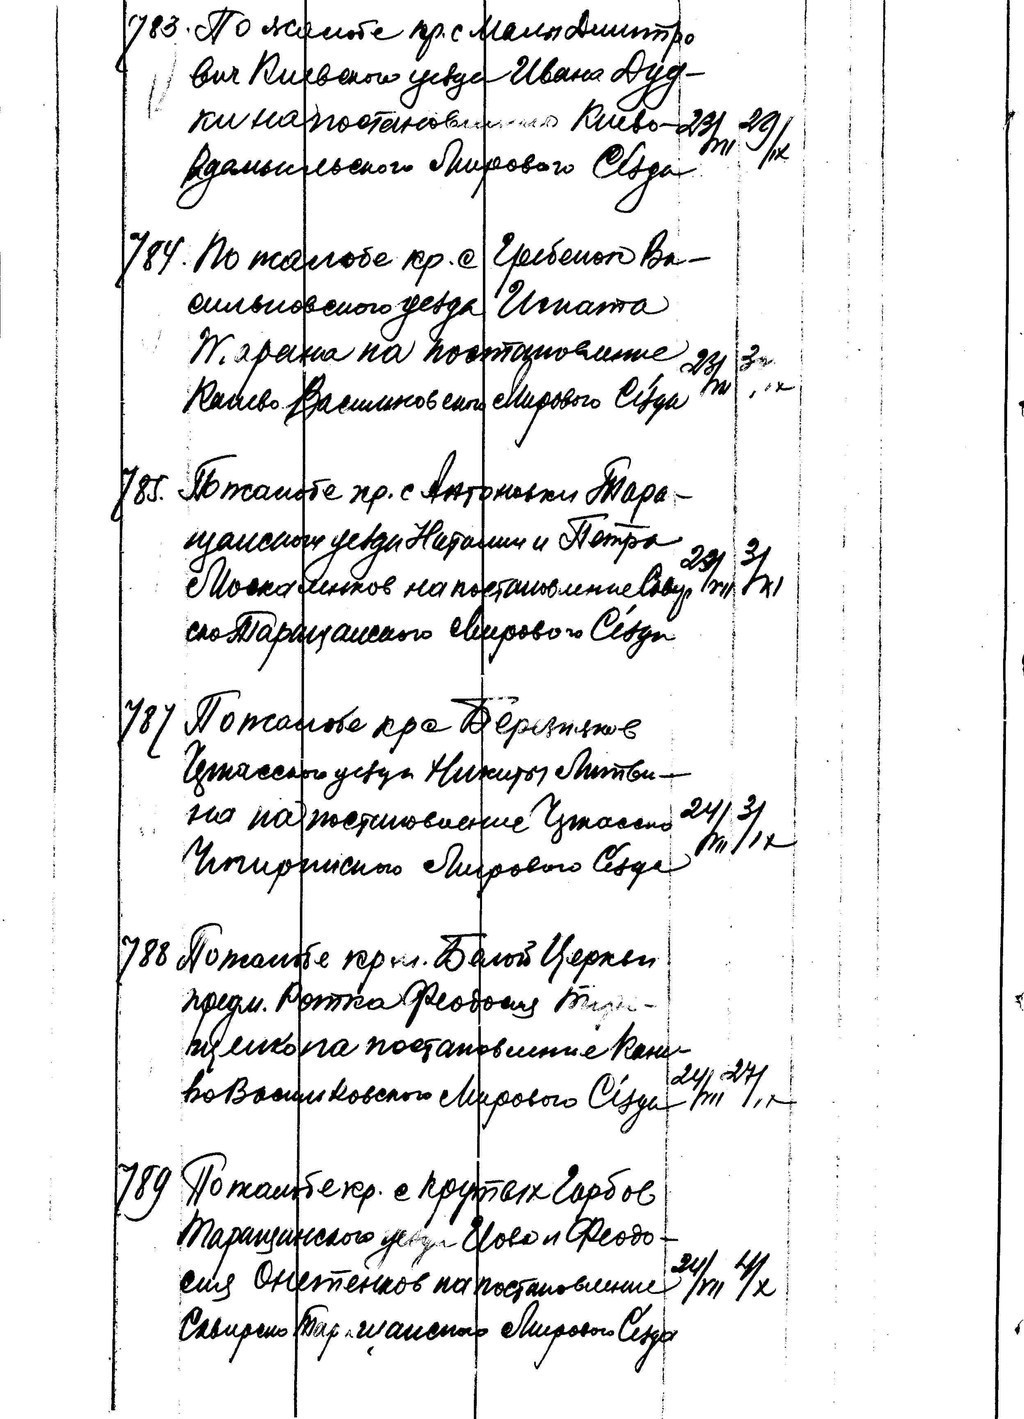 783. По жалобе кр. с Малы Дмитро
вич Киевского уезда Ивана Дуд-
ки на постановление Киево- 23/VII 29/IX
Радомысльского Мирового Съезда
784. По жалобе кр. с Гребенок Ва-
сильковского уезда Игната
на постановление
Киево Васильковского Мирового Съезда 23/VII 3 /IX
785. По жалобе кр. с Антоновки Тара-
щанского уезда Наталии и Петра
Москаленков на постановление Сквир 23/VII 3/XI
ско Таращанского Мирового Съезда
787 По жалобе кр с Березняков
Черкасского уезда Никиты Литви-
на на постановление Черкасско 24/VII 3/IX
Чигиринского Мирового Съезда
788 По жалобе кр м. Белой Церкви
предм. Ротка Феодосия
на постановление Киев-
во Васильковского Мирового Съезда 24/VII 27/IX
789 По жалобе кр. с Крутых Горбов
Таращанского уезда Иова и Феодо-
сия на постановление 24/VII 4/X
Сквирско Таращанского Мирового Съезда